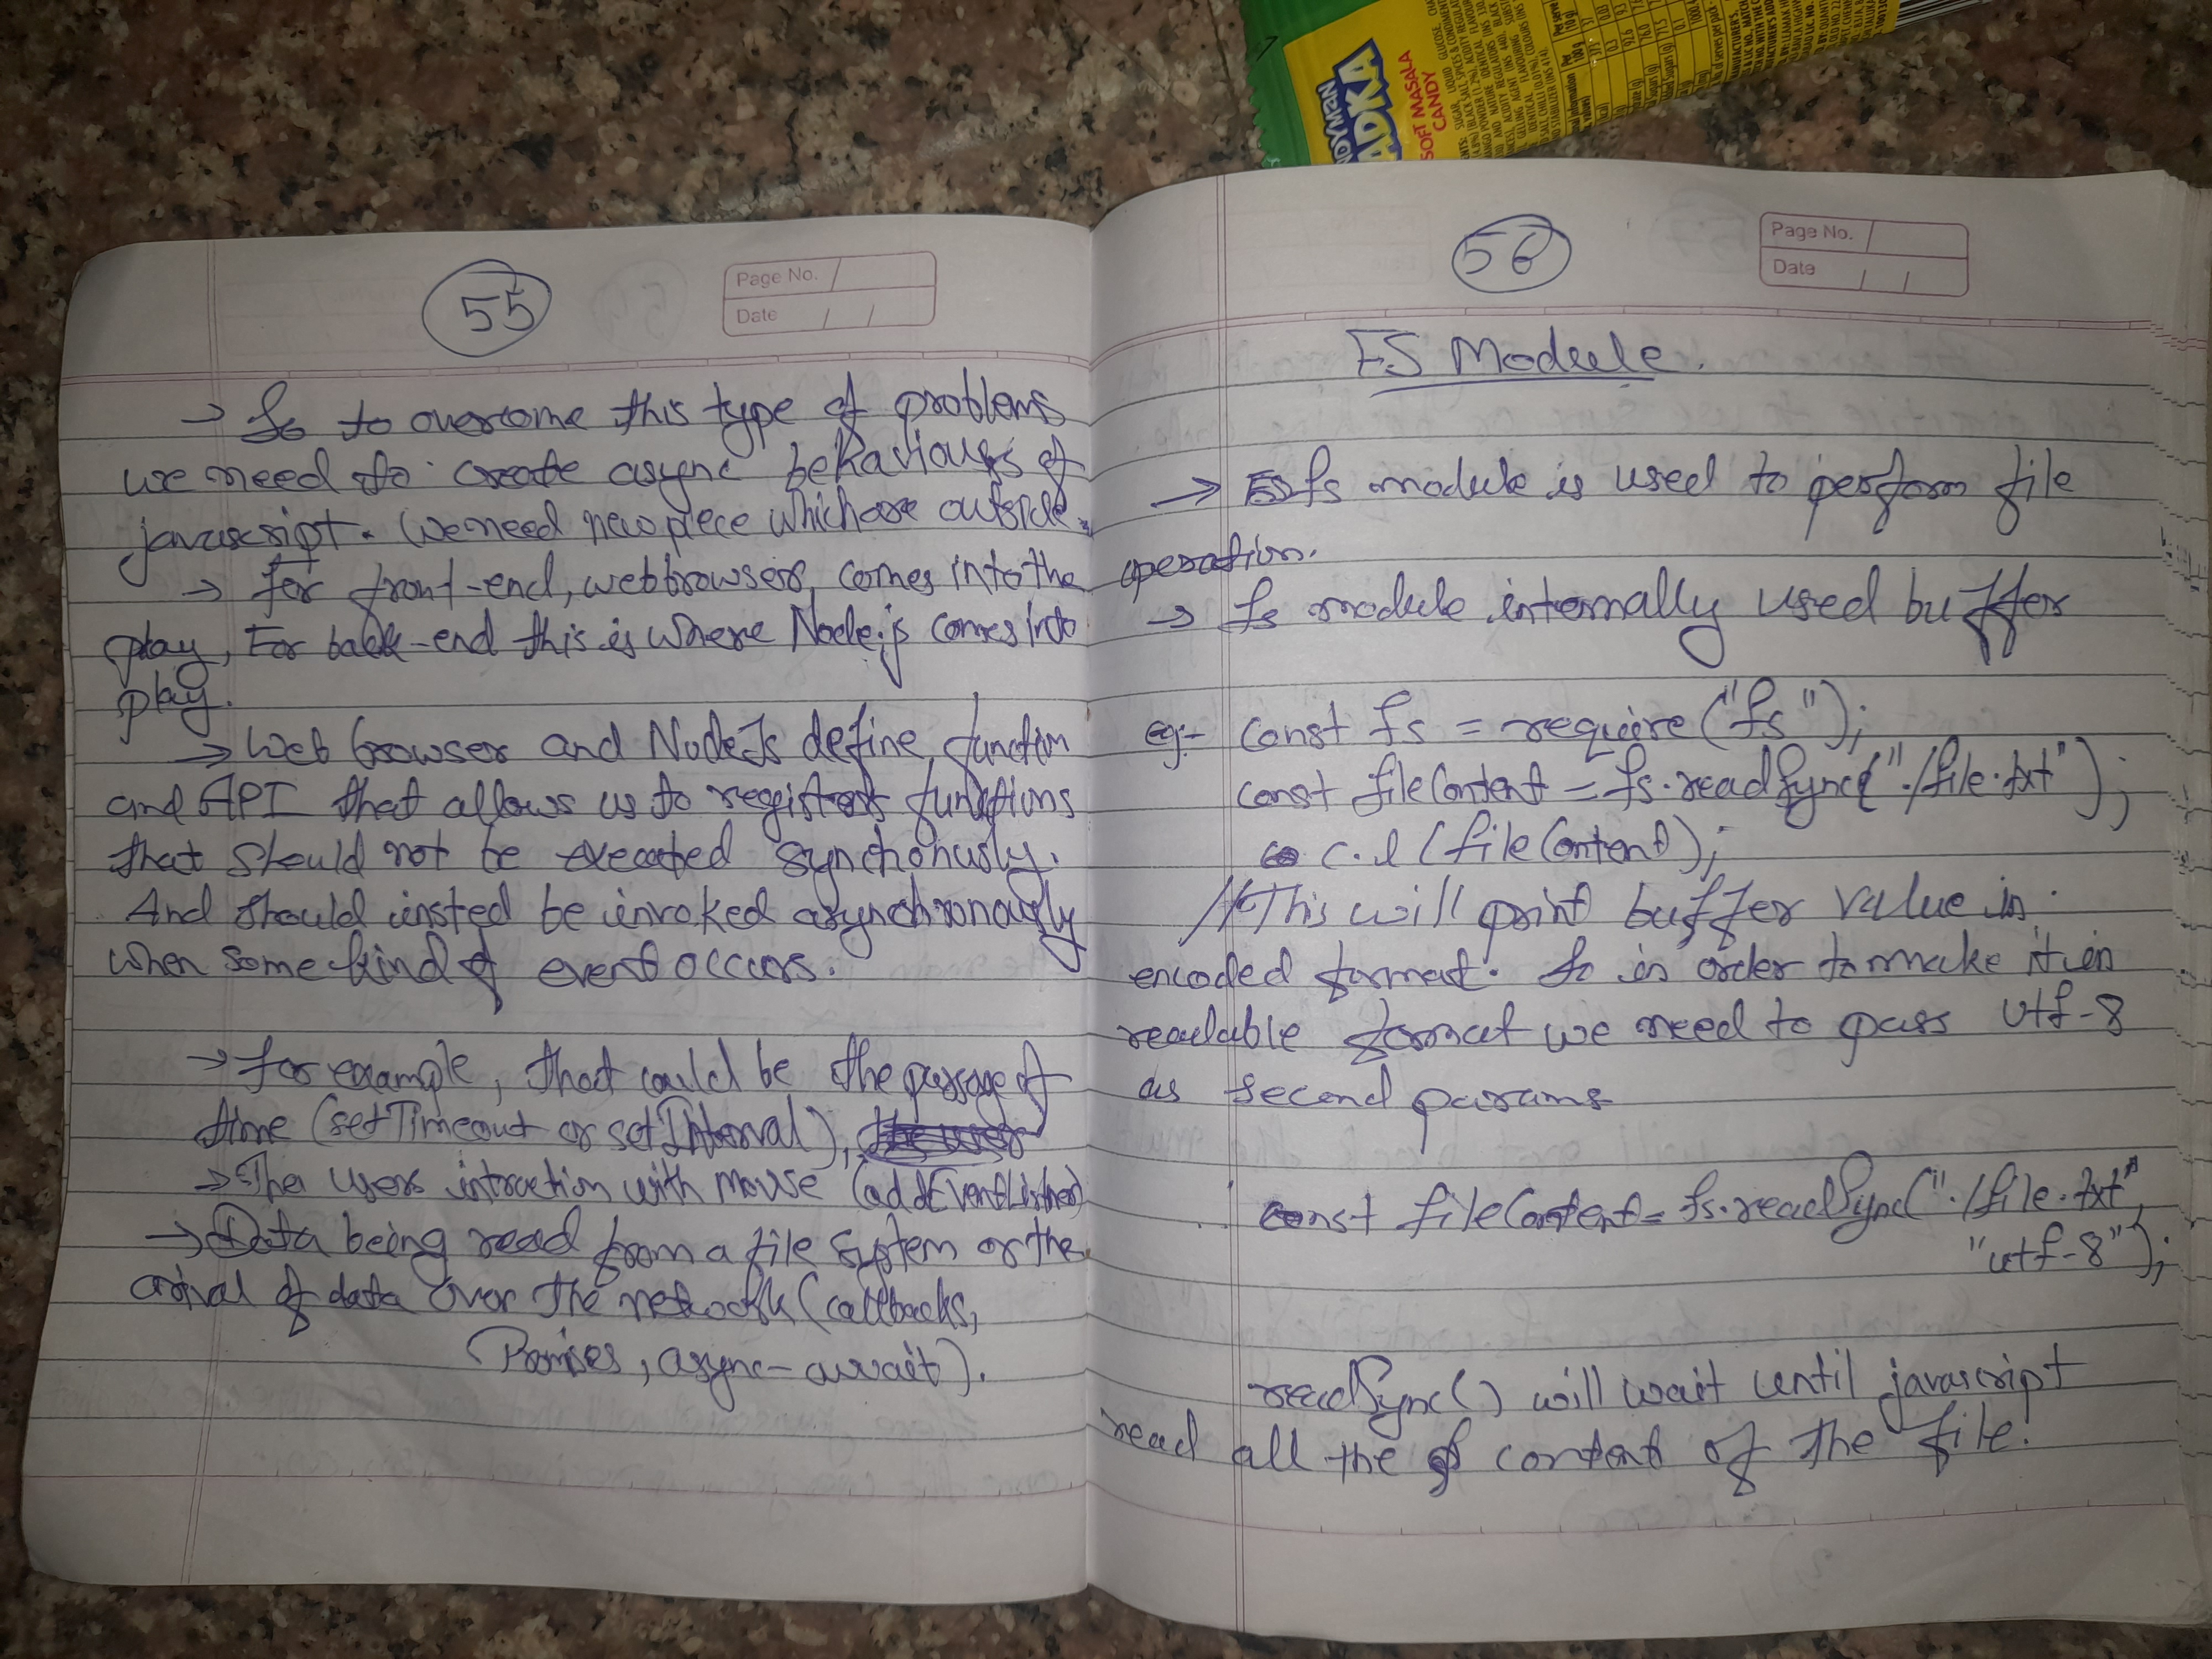 55
Page No.
Date / /
→ So to overcome this type of problems
we need to create async behaviours of
javascript. We need new piece which are outside.
→ for front-end, webbrowsers, comes into the
play, For back-end this is where Node.js comes into
play.
→ Web browser and NodeJs define function
and API that allows us to registers functions
that should not be executed synchonusly.
And should insted be invoked asynchronously
when some kind of event occurs.
→ for example, that could be the passage of
time (setTimeout or setInterval), the user
→ The users intraction with mouse (addEventListner)
→ Data being read from a file system or the
arrival of data over the network (callbacks,
Promises, async-await).
56
Page No.
Date / /
F.S Module.
→ fs module is used to perform file
operation.
→ fs module internally used buffer
eg:- const fs = require("fs");
const fileContent = fs.readSync("./file.txt");
c.l (fileContent);
// This will print buffer value in
encoded format. So in order to make it in
readable format we need to pass utf-8
as second params
const fileContent = fs.readSync("./file.txt",
"utf-8");
readSync() will wait until javascript
read all the content of the file.
ADKA
SOFT MASALA
CANDY